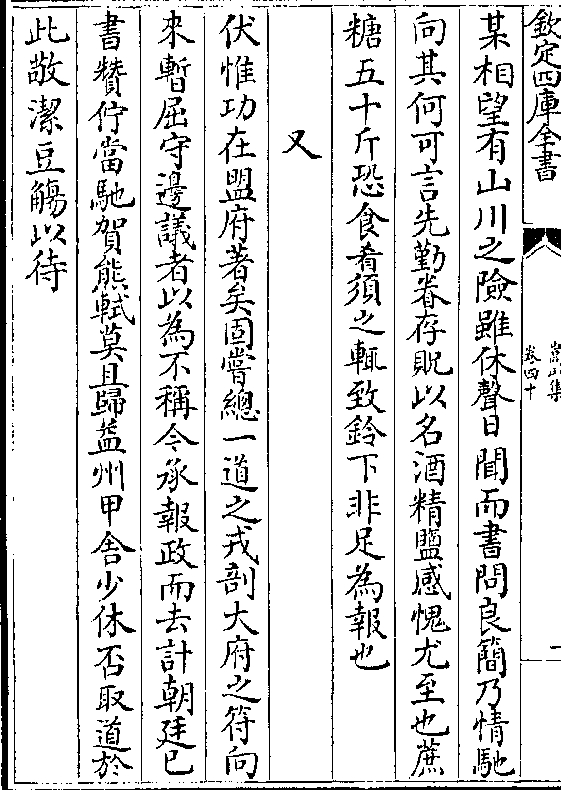 欽定四庫全書
嵩山集
卷四十
一
某相望有山川之險雖休聲日聞而書問良簡乃情馳
向其何可言先勤眷存貺以名酒精鹽感愧尤至也蔗
糖五十斤恐食肴須之輒致鈴下非足為報也
又
伏惟功在盟府著矣固嘗總一道之戎剖大府之符向
來暫屈守邊議者以為不稱今承報政而去計朝廷已
書贊佇當馳賀熊軾莫且歸益州甲舍少休否取道於
此敬潔豆觴以待